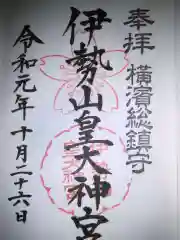 奉拝 横濱総鎮守
伊勢山皇大神宮
令和元年十月二十六日